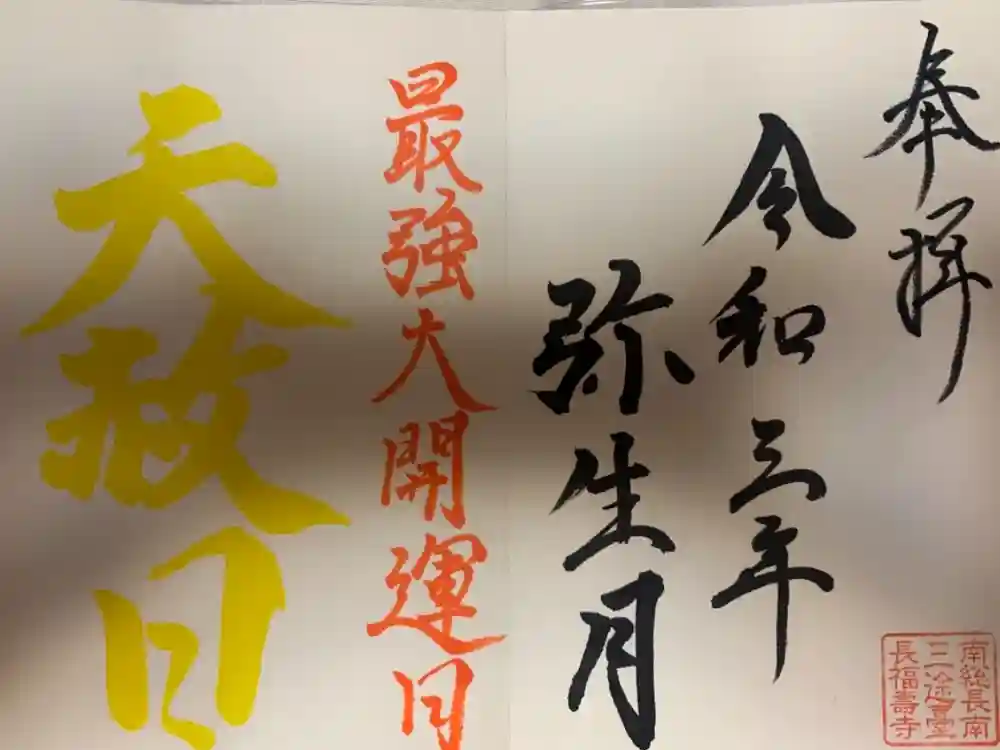 奉拝
令和三年
弥生月
南総長南
三途臺
長福壽寺
最強大開運日
天赦日